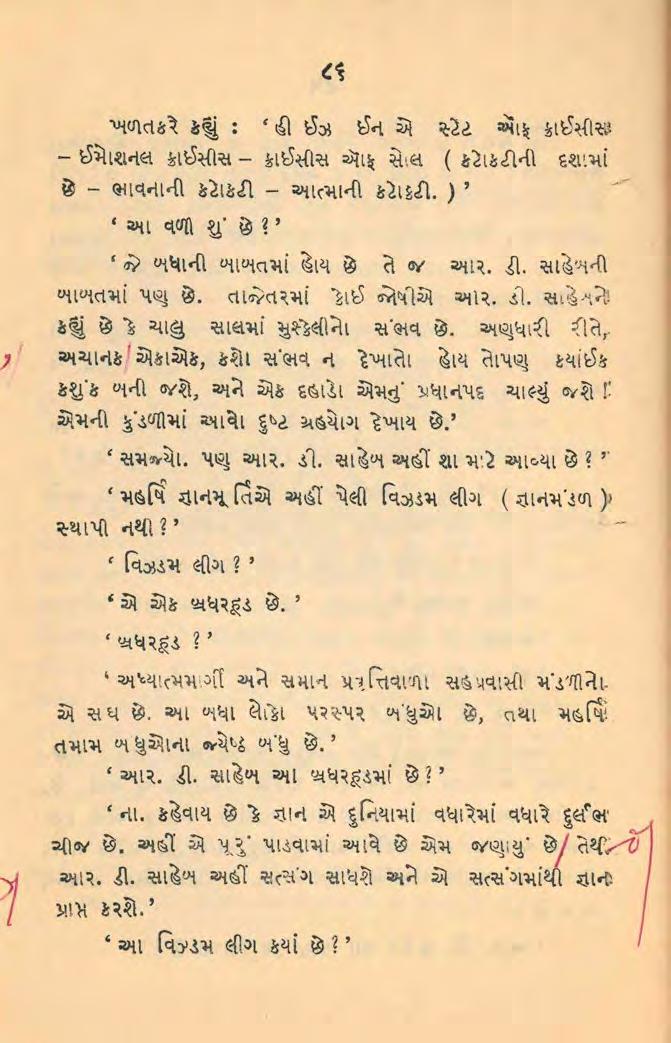 ૮૬
ખળતકરે કહ્યું : ‘ હી ઈઝ ઈન એ સ્ટેટ ઑફ ક્રાઈસીસ
– ઈમોશનલ ક્રાઈસીસ – ક્રાઈસીસ ઑફ સોલ ( કટોકટીની દશામાં
છે – ભાવનાની કટોકટી – આત્માની કટોકટી. ) ’
‘ આ વળી શું છે ? ’
‘ જે બધાની બાબતમાં હોય છે તે જ આર. ડી. સાહેબની
બાબતમાં પણ છે. તાજેતરમાં કોઈ જોષીએ આર. ડી. સાહેબને
કહ્યું છે કે ચાલુ સાલમાં મુશ્કેલીનો સંભવ છે. અણધારી રીતે,
અચાનક એકાએક, કશો સંભવ ન દેખાતો હોય તોપણ કયાંઈક
કશુંક બની જશે, અને એક દહાડો એમનું પ્રધાનપદ ચાલ્યું જશે !
એમની કુંડળીમાં આવો દુષ્ટ ગ્રહયોગ દેખાય છે.’
‘ સમજ્યો. પણ આર. ડી. સાહેબ અહીં શા માટે આવ્યા છે ? ’
‘ મહર્ષિ જ્ઞાનમૂર્તિએ અહીં પેલી વિઝડમ લીગ ( જ્ઞાનમંડળ )
સ્થાપી નથી ? ’
‘ વિઝડમ લીગ ? ’
‘ એ એક બ્રધરહૂડ છે. ’
‘ બ્રધરહૂડ ? ’
‘ અધ્યાત્મમાર્ગી અને સમાન પ્રવૃત્તિવાળા સહપ્રવાસી મંડળીનો
એ સંઘ છે. આ બધા લોકો પરસ્પર બંધુઓ છે, તથા મહર્ષિ
તમામ બંધુઓના જ્યેષ્ઠ બંધુ છે. ’
‘ આર. ડી. સાહેબ આ બ્રધરહૂડમાં છે ? ’
‘ ના. કહેવાય છે કે જ્ઞાન એ દુનિયામાં વધારેમાં વધારે દુર્લભ
ચીજ છે. અહીં એ પૂરું પાડવામાં આવે છે એમ જણાયું છે તેથી
આર. ડી. સાહેબ અહીં સત્સંગ સાધશે અને એ સત્સંગમાંથી જ્ઞાન
પ્રાપ્ત કરશે. ’
‘ આ વિઝડમ લીગ કયાં છે ? ’